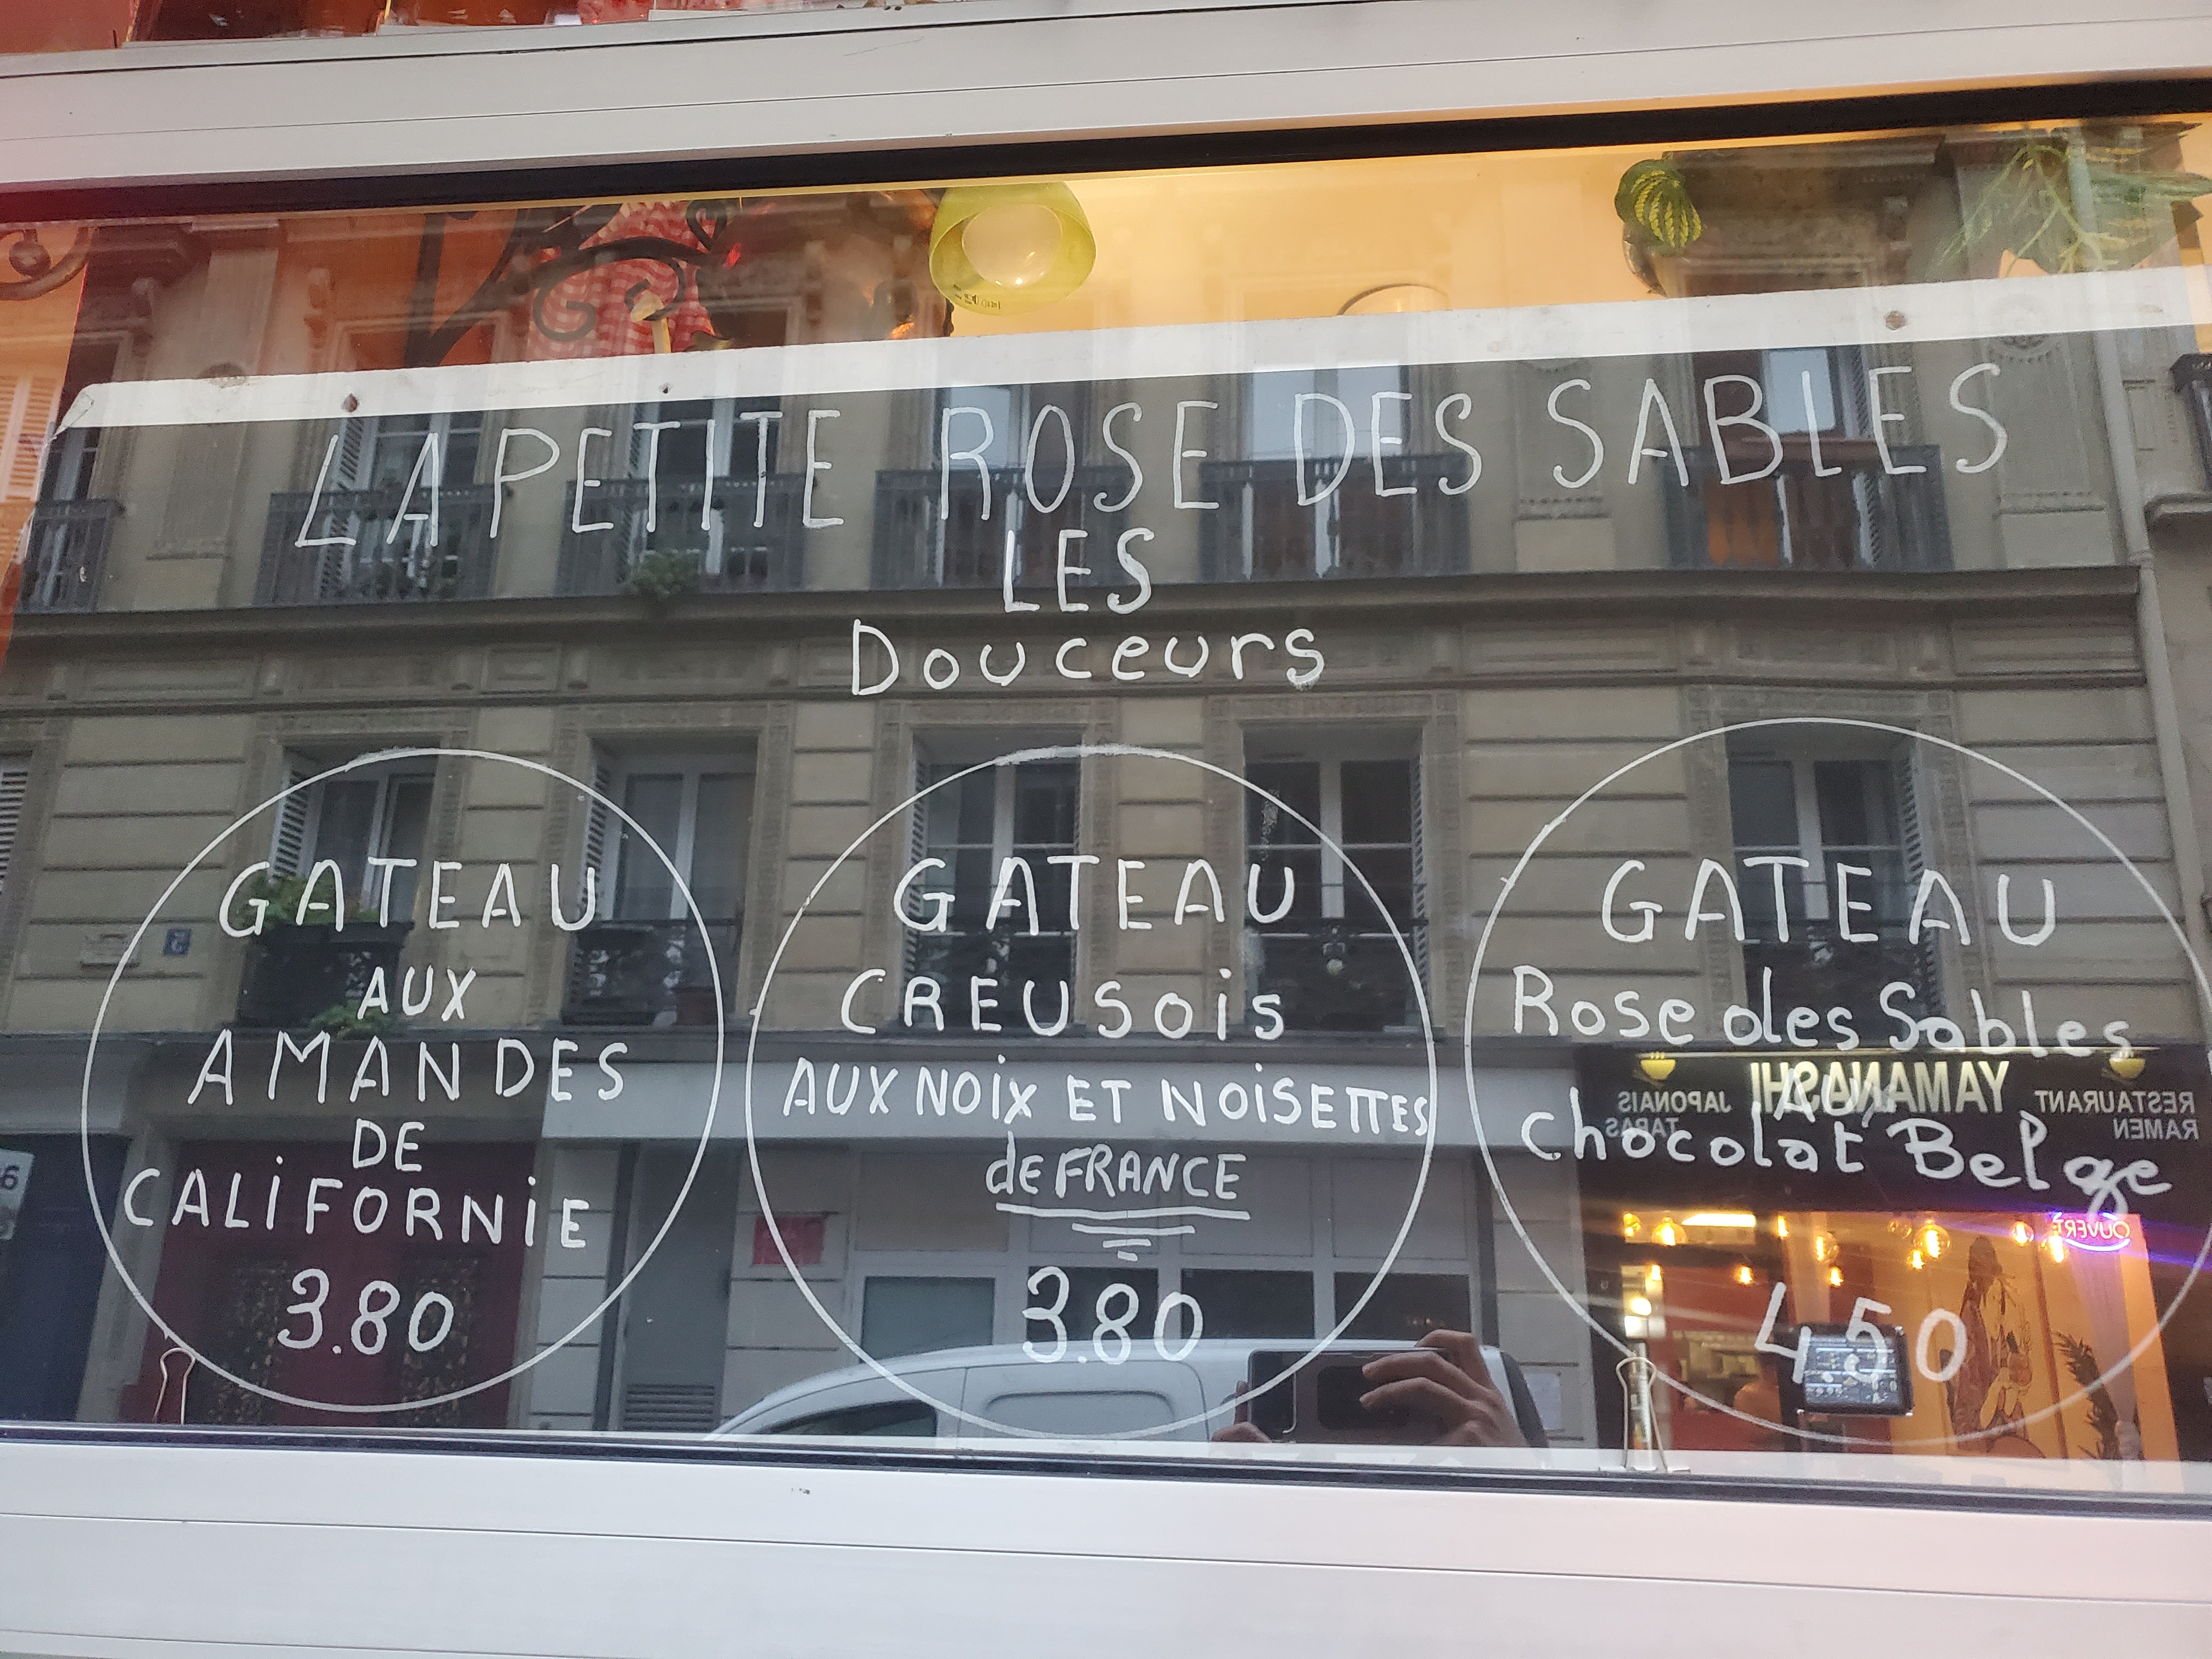 LA PETITE ROSE DES SABLES
LES
Douceurs
GATEAU
AUX
AMANDES
DE
CALiFORNiE
3.80
GATEAU
CREUSOis
AUX NOix ET NOiSETTES
de FRANCE
3.80
GATEAU
Rose des Sables
AU
chocolat Belge
4.50
YAMANASHI
RESTAURANT
JAPONAIS
RAMEN
TAPAS
OUVERT